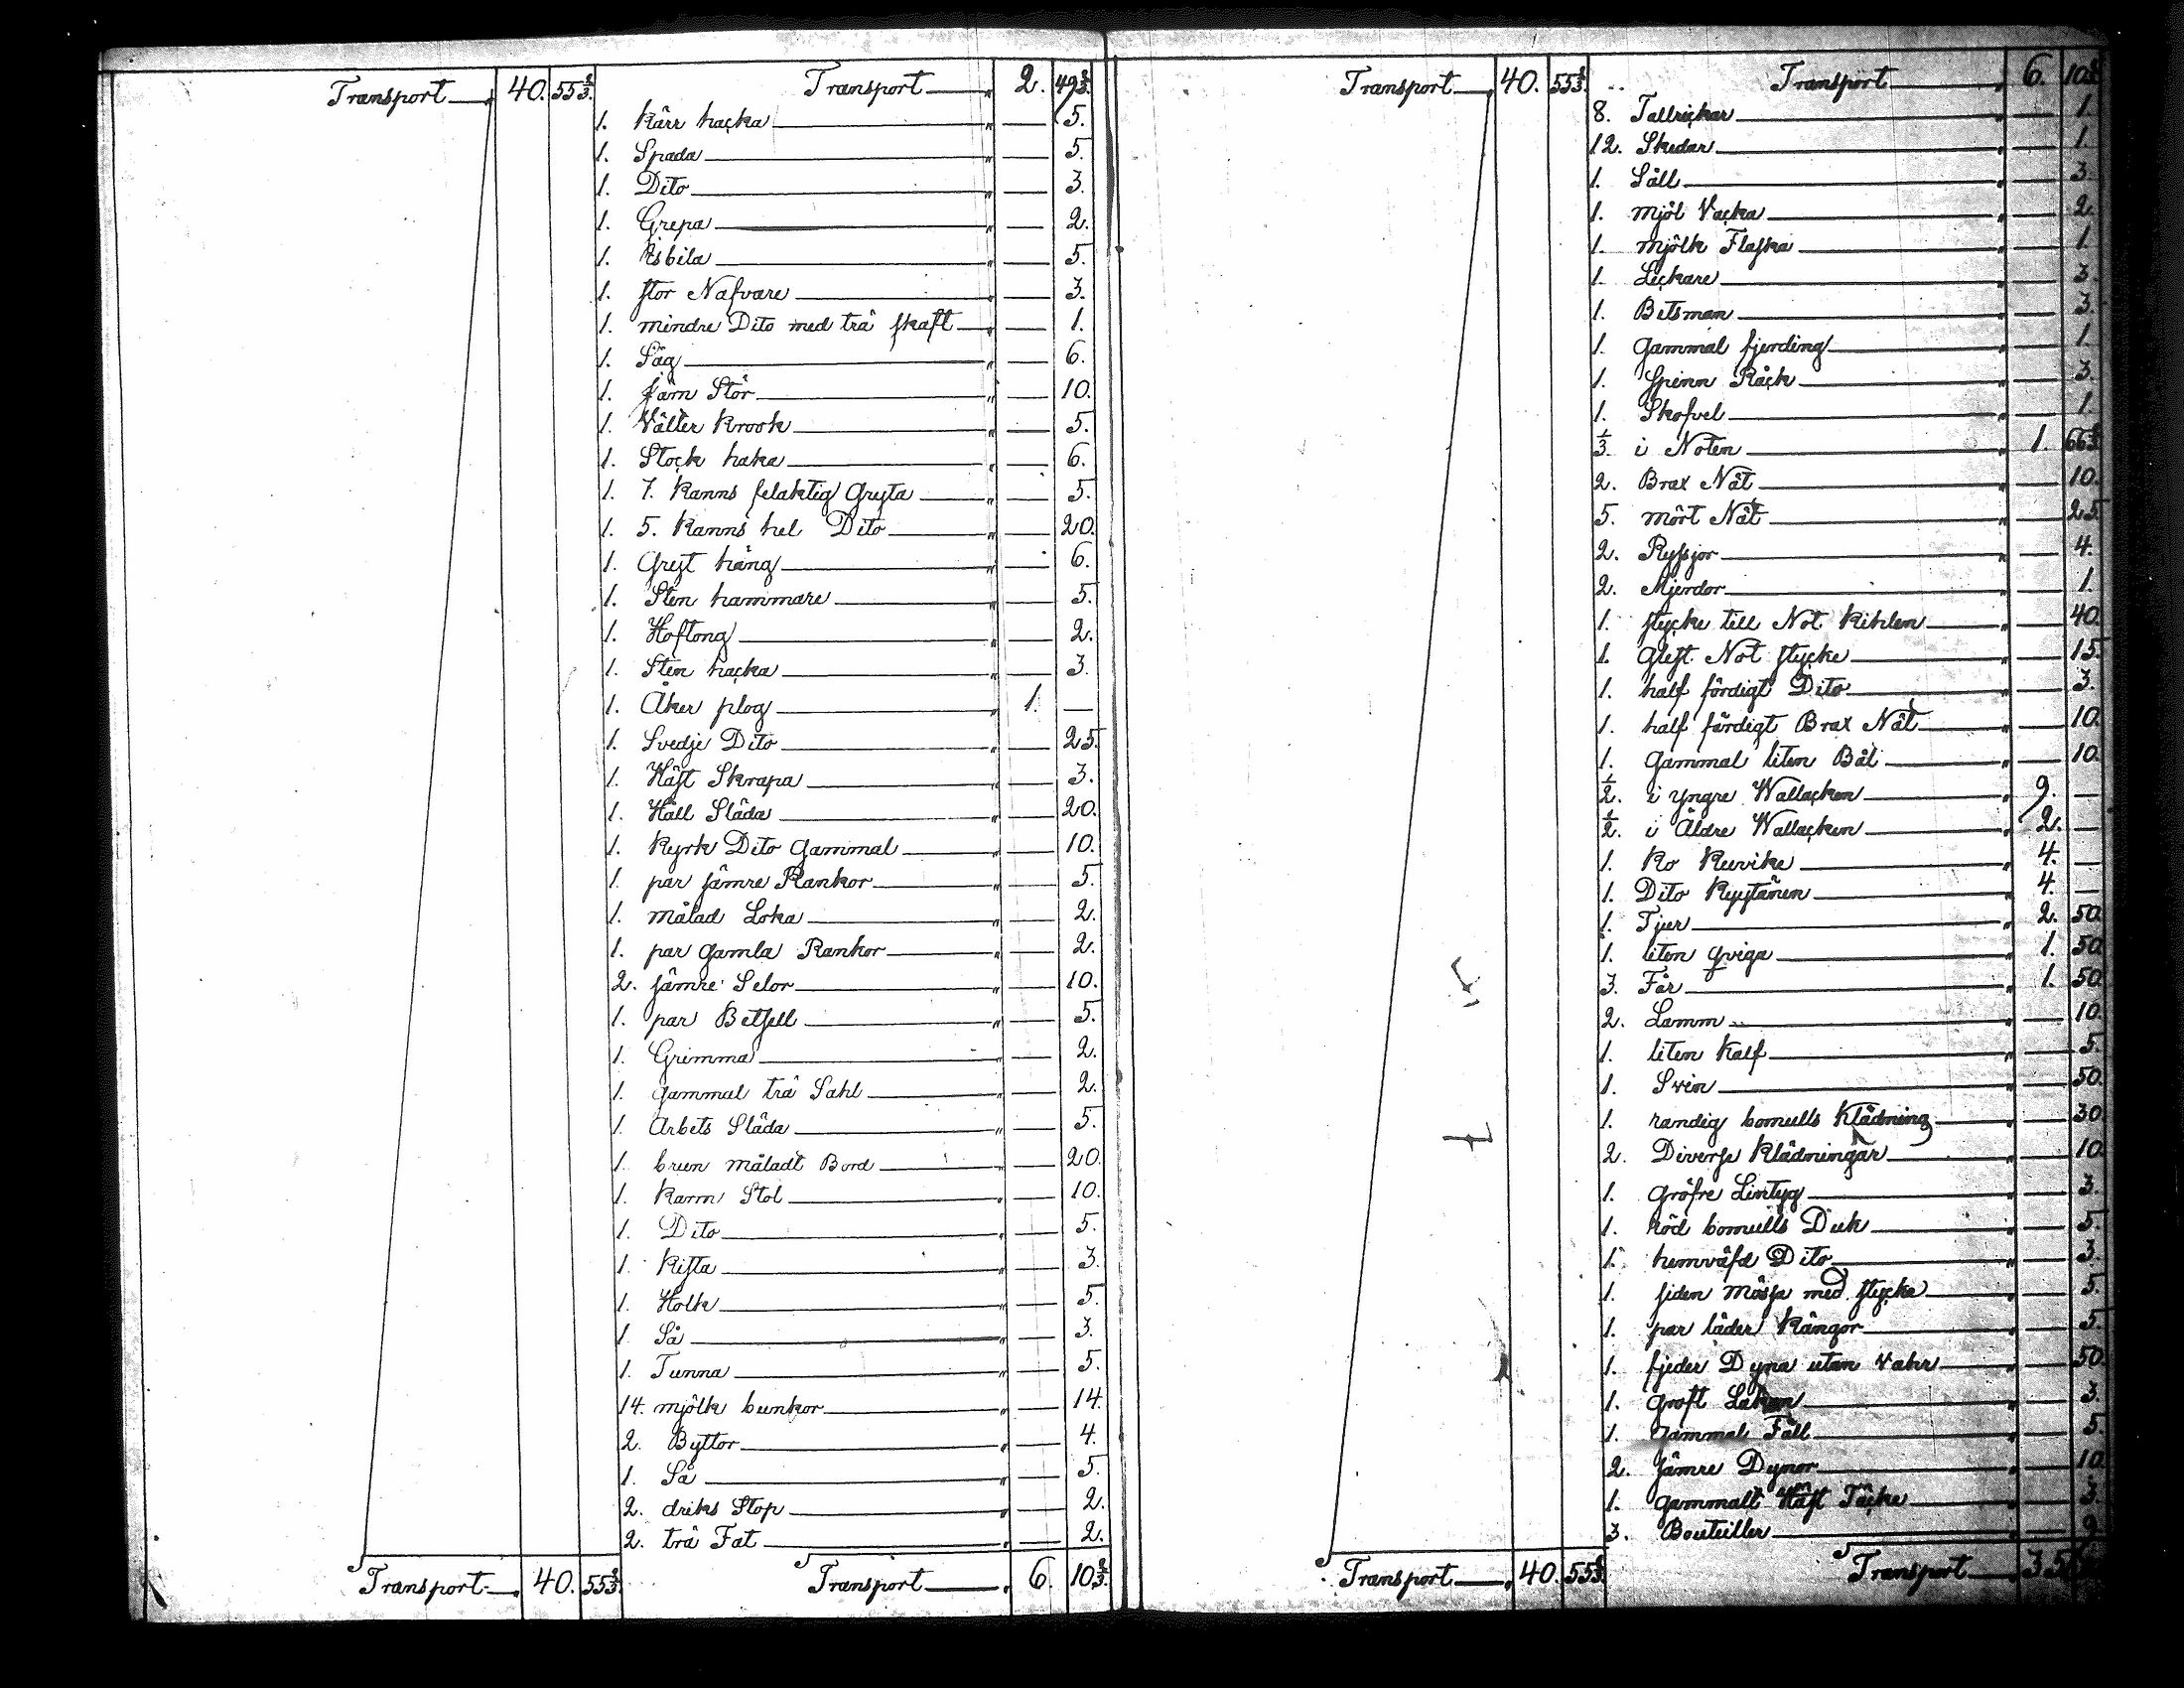 Transport 40. 55 2/3. Transport 2. 49 2/3.
1. Kärr hacka 5.
1. Spada 5.
1. Dito 3.
1. Grepa 2.
1. Isbila 5.
1. stor Nafvare 3.
1. mindre Dito med trä skaft 1.
1. Såg 6.
1. Järn Stör 10.
1. Välter Krook 5.
1. Stock haka 6.
1. 7. Kanns felaktig Gryta 5.
1. 5. Kanns hel Dito 20.
1. Gryt häng 6.
1. Sten hammare 5.
1. Hoftong 2.
1. Sten hacka 3.
1. Åker plog 1. —
1. Svedje Dito 25.
1. Häst Skrapa 3.
1. Håll Släda 20.
1. Kyrk Dito Gammal 10.
1. par sämre Rankor 5.
1. målad Loka 2.
1. par gamla Rankor 2.
2. sämre Selor 10.
1. par Betsell 5.
1. Grimma 2.
1. gammal trä Sahl 2.
1. Arbets Släda 5.
1. brun måladt Bord 20.
1. Karm Stol 10.
1. Dito 5.
1. Kista 3.
1. Holk 5.
1. Så 3.
1. Tunna 5.
14. mjölk bunkor 14.
2. Byttor 4.
1. Så 5.
2. driks Stop 2.
2. trä Fat 2.
Transport 40. 55 2/3. Transport 6. 10 2/3.
Transport 40. 55 2/3. Transport 6. 10 2/3.
8. Tallrickar 1.
12. Skedar 1.
1. Såll 3.
1. mjöl Vacka 2.
1. mjölk Flaska 1.
1. Leckare 3.
1. Betsman 3.
1. gammal fjerding 1.
1. Spinn Råck 3.
1. Skofvel 1.
1/3. i Noten 1. 66 2/3.
2. Brax Nät 10.
5. mört Nät 25.
2. Ryssjor 4.
2. Mjerdor 1.
1. stycke till Not Kihlen 40.
1. Glest Not stycke 15.
1. half färdigt Dito 3.
1. half färdigt Brax Nät 10.
1. gammal liten Båt 10.
1/2. i yngre Wallacken 9. —
1/2. i Äldre Wallacken 2. —
1. Ko Kuvike 4. —
1. Dito 4. —
1. Tjur 2. 50.
1. liten qviga 1. 50.
3. Får 1. 50.
2. Lamm 10.
1. liten Kalf 5.
1. Svin 50.
1. randig bomulls Klädning 30.
2. Diverse Klädningar 10.
1. gröfre Lintyg 3.
1. röd bomulls Duk 5.
1. hemväfd Dito 3.
1. siden mössa med stycke 5.
1. par läder Kängor 5.
1. fjeder Dyna utan vahr 50.
1. groft Lakan 3.
1. gammal Fäll 5.
2. sämre Dynor 10.
1. gammalt Häst Täcke 3.
3. Bouteiller 9.
Transport 40. 55 2/3. Transport 35.